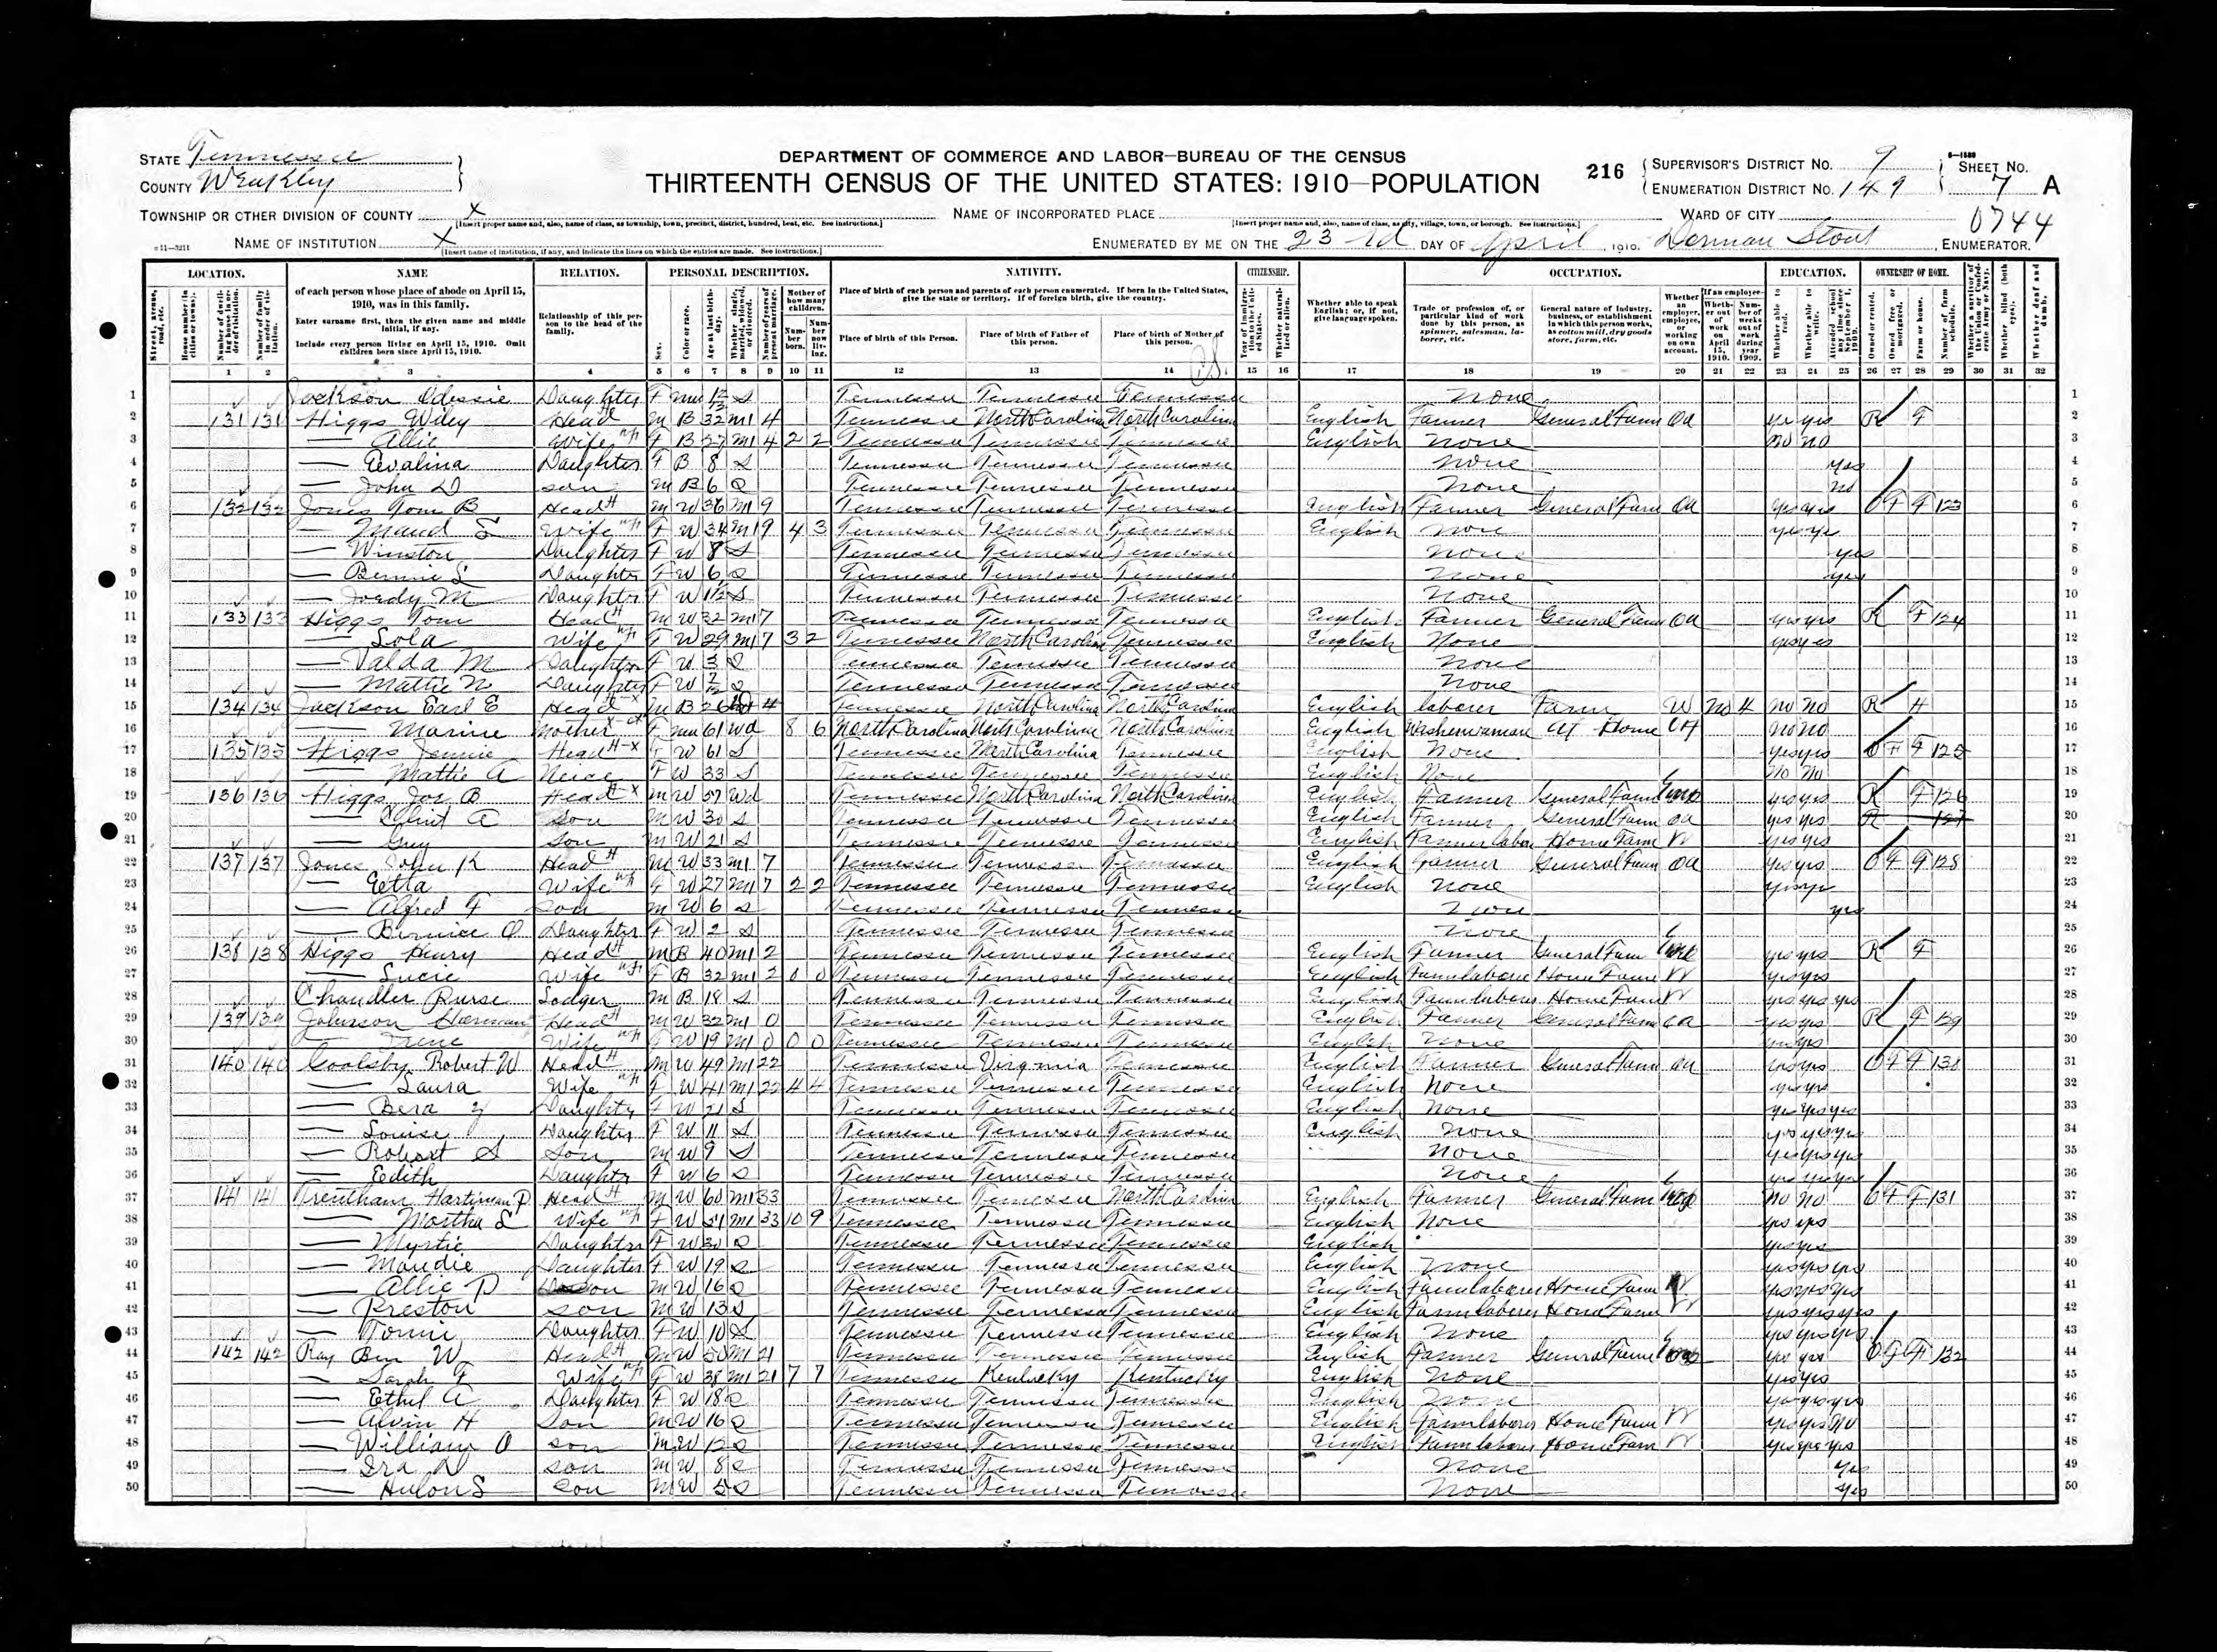 STATE Tennessee
COUNTY Weakley
DEPARTMENT OF COMMERCE AND LABOR—BUREAU OF THE CENSUS
THIRTEENTH CENSUS OF THE UNITED STATES: 1910—POPULATION
216
SUPERVISOR'S DISTRICT NO. 9
ENUMERATION DISTRICT NO. 149
SHEET NO.
7 A
TOWNSHIP OR OTHER DIVISION OF COUNTY X
[Insert proper name and, also, name of class, as township, town, precinct, district, hundred, beat, etc. See instructions.]
NAME OF INCORPORATED PLACE
[Insert proper name and, also, name of class, as city, village, town, or borough. See instructions.]
WARD OF CITY
0744
NAME OF INSTITUTION X
[Insert name of institution, if any, and indicate the lines on which the entries are made. See instructions.]
ENUMERATED BY ME ON THE 23rd DAY OF April, 1910. Derman Stout, ENUMERATOR.
LOCATION. NAME RELATION. PERSONAL DESCRIPTION. NATIVITY. CITIZENSHIP. OCCUPATION. EDUCATION. OWNERSHIP OF HOME.
1 2 3 4 5 6 7 8 9 10 11 12 13 14 15 16 17 18 19 20 21 22 23 24 25 26 27 28 29 30 31 32
1 Jackson Odessie Daughter F mu S Tennessee Tennessee Tennessee none 1
2 131 131 Higgs Wiley Head m B 32 m1 4 Tennessee North Carolina North Carolina English Farmer General Farm oa yes yes R F 2
3 — Allie wife F B 27 m1 4 2 2 Tennessee Tennessee Tennessee English none no no 3
4 — Evalina Daughter F B 8 S Tennessee Tennessee Tennessee none yes 4
5 — John D son m B 6 S Tennessee Tennessee Tennessee none no 5
6 132 132 Jones Tom B Head m W 36 m1 9 Tennessee Tennessee Tennessee English Farmer General Farm oa yes yes O F F 123 6
7 — Maud E wife F W 34 m1 9 4 3 Tennessee Tennessee Tennessee English none yes yes 7
8 — Winston Daughter F W 8 S Tennessee Tennessee Tennessee none yes 8
9 — Bennie L Daughter F W 6 S Tennessee Tennessee Tennessee none yes 9
10 — M Daughter F W S Tennessee Tennessee Tennessee none 10
11 133 133 Higgs Tom Head m W 32 m1 7 Tennessee Tennessee Tennessee English Farmer General Farm oa yes yes R F 124 11
12 — Lola Wife F W 29 m1 7 3 2 Tennessee North Carolina Tennessee English None yes yes 12
13 — Valda M Daughter F W 3 S Tennessee Tennessee Tennessee none 13
14 — Mattie N Daughter F W 7/12 S Tennessee Tennessee Tennessee none 14
15 134 134 Jackson Earl E Head m B 26 Tennessee North Carolina North Carolina English laborer Farm W no 4 no no R H 15
16 — Marine Mother F mu 61 wd 8 6 North Carolina North Carolina North Carolina English Washerwoman At Home no no 16
17 135 135 Higgs Jennie Head F W 61 S Tennessee North Carolina Tennessee English None yes yes O F F 125 17
18 — Mattie A Neice F W 33 S Tennessee Tennessee Tennessee English None No No 18
19 136 136 Higgs Joe B Head m W 57 Wd Tennessee North Carolina North Carolina English Farmer General Farm Emp yes yes R F 126 19
20 — Clint A Son m W 30 S Tennessee Tennessee Tennessee English Farmer General Farm oa yes yes R 127 20
21 — Guy Son m W 21 S Tennessee Tennessee Tennessee English Farm labor Home Farm W yes yes 21
22 137 137 Jones John K Head m W 33 m1 7 Tennessee Tennessee Tennessee English Farmer General Farm oa yes yes O F F 128 22
23 — Etta Wife F W 27 m1 7 2 2 Tennessee Tennessee Tennessee English none yes yes 23
24 — Alfred F Son m W 6 S Tennessee Tennessee Tennessee none yes 24
25 — Bernice O Daughter F W 2 S Tennessee Tennessee Tennessee none 25
26 138 138 Higgs Henry Head m B 40 m1 2 Tennessee Tennessee Tennessee English Farmer General Farm Emp yes yes R F 26
27 — Lucie Wife F B 32 m1 2 0 0 Tennessee Tennessee Tennessee English Farm laborer Home Farm W yes yes 27
28 Chandler Lodger m B 18 S Tennessee Tennessee Tennessee English Farm laborer Home Farm W yes yes yes 28
29 139 139 Johnson Harman Head m W 32 m1 0 Tennessee Tennessee Tennessee English Farmer General Farm oa yes yes R F 129 29
30 — Irene Wife F W 19 m1 0 0 0 Tennessee Tennessee Tennessee English None yes yes 30
31 140 140 Goolsby Robert W Head m W 49 m1 22 Tennessee Virginia Tennessee English Farmer General Farm oa yes yes O F F 130 31
32 — Laura Wife F W 41 m1 22 4 4 Tennessee Tennessee Tennessee English None yes yes 32
33 — Bera Daughter F W 21 S Tennessee Tennessee Tennessee English None yes yes yes 33
34 — Louise Daughter F W 11 S Tennessee Tennessee Tennessee English None yes yes yes 34
35 — Robert S Son m W 9 S Tennessee Tennessee Tennessee None yes yes yes 35
36 — Edith Daughter F W 6 S Tennessee Tennessee Tennessee None yes yes yes 36
37 141 141 Trentham Hartman P Head m W 60 m1 33 Tennessee Tennessee North Carolina English Farmer General Farm Emp No No O F F 131 37
38 — Martha L Wife F W 51 m1 33 10 9 Tennessee Tennessee Tennessee English None yes yes 38
39 — Myrtie Daughter F W 30 S Tennessee Tennessee Tennessee English yes yes 39
40 — Maudie Daughter F W 19 S Tennessee Tennessee Tennessee English none yes yes yes 40
41 — Allie P Son m W 16 S Tennessee Tennessee Tennessee English Farm laborer Home Farm W yes yes yes 41
42 — Preston son m W 13 S Tennessee Tennessee Tennessee English Farm laborer Home Farm W yes yes yes 42
43 — Tonie Daughter F W 10 S Tennessee Tennessee Tennessee English None yes yes yes 43
44 142 142 Ray Ben W Head m W 50 m1 21 Tennessee Tennessee Tennessee English Farmer General Farm Emp yes yes O F F 132 44
45 — Sarah F Wife F W 38 m1 21 7 7 Tennessee Kentucky Kentucky English None yes yes 45
46 — Ethel A Daughter F W 18 S Tennessee Tennessee Tennessee English None yes yes yes 46
47 — Alvin H Son m W 16 S Tennessee Tennessee Tennessee English Farm laborer Home Farm W yes yes No 47
48 — William O son m W 12 S Tennessee Tennessee Tennessee English Farm laborer Home Farm W yes yes yes 48
49 — Ira D son m W 8 S Tennessee Tennessee Tennessee None yes 49
50 — Hulon S Son m W 5 S Tennessee Tennessee Tennessee None yes 50